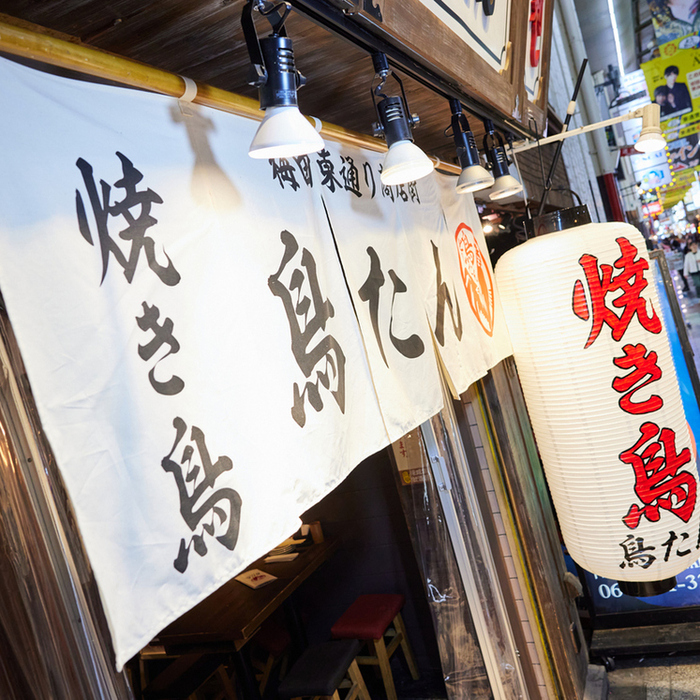 梅田東通り商店街
焼き鳥
鳥たん
焼き鳥
鳥たん
06